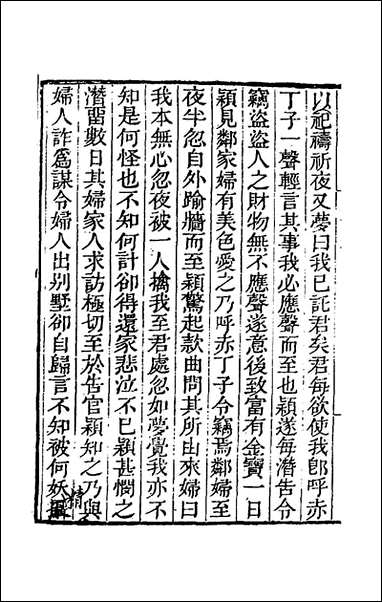 以祀禱祈夜又夢曰我已託君矣君每欲使我卽呼赤
丁子一聲輕言其事我必應聲而至也穎遂每潛告令
竊盜盜人之財物無不應聲遂意後致富有金寶一日
穎見鄰家婦有美色愛之乃呼赤丁子令竊焉鄰婦至
夜半忽自外踰牆而至穎驚起款曲問其所由來婦曰
我本無心忽夜被一人擒我至君處忽如夢覺我亦不
知是何怪也不知何計卻得還家悲泣不已穎甚憫之
潛畱數日其婦家人求訪極切至於告官穎知之乃與
婦人詐爲謀令婦人出別墅卻自歸言不知被何妖